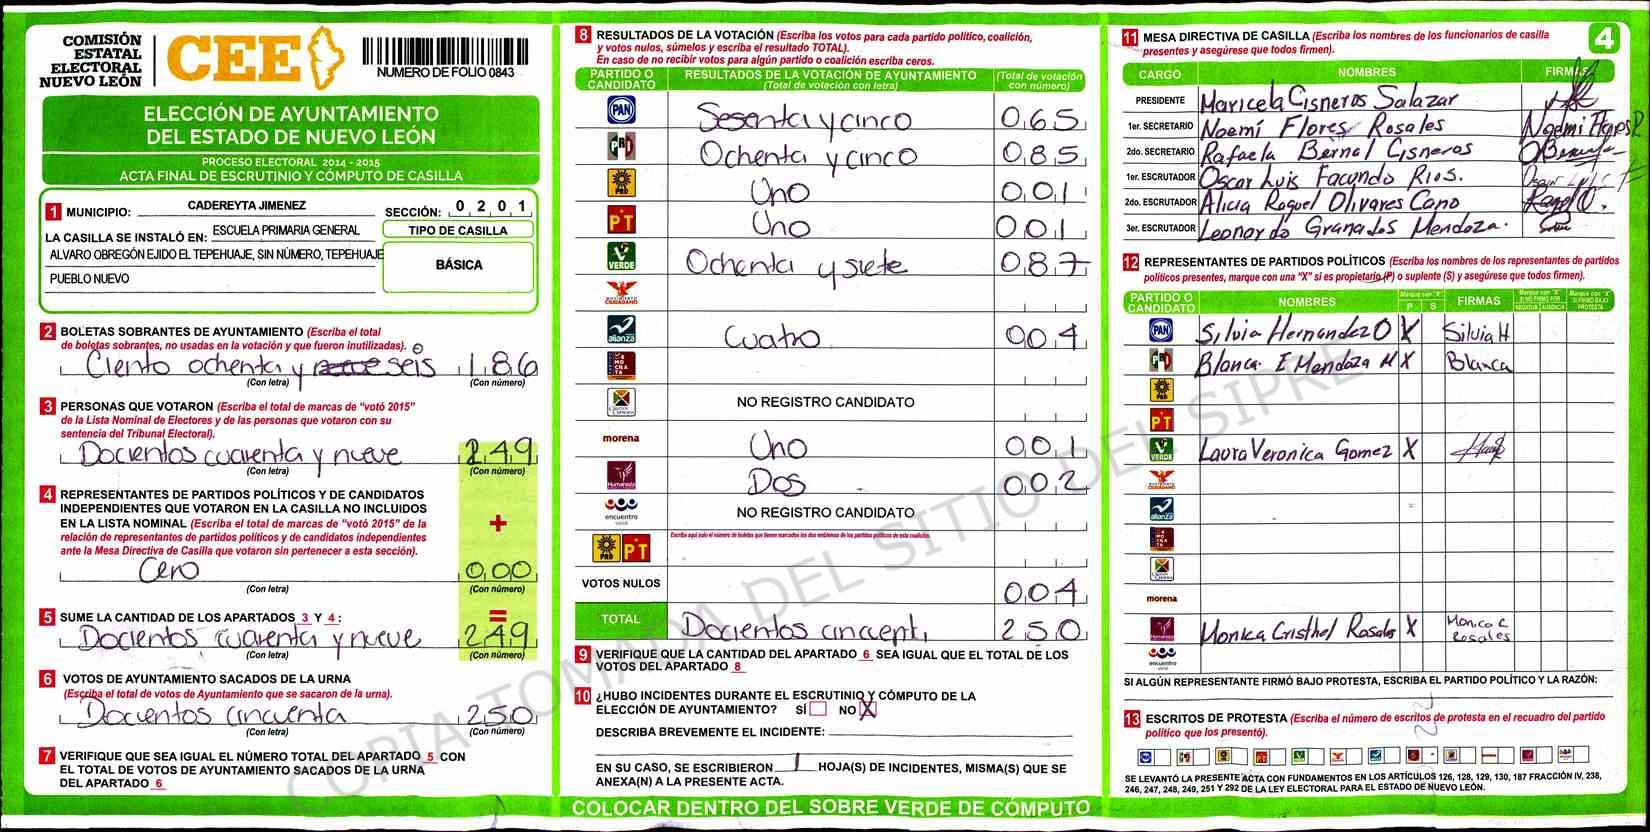 COMISIÓN
ESTATAL
ELECTORAL
NUEVO LEÓN
CEE
NUMERO DE FOLIO 0843
ELECCIÓN DE AYUNTAMIENTO
DEL ESTADO DE NUEVO LEÓN
PROCESO ELECTORAL 2014 - 2015
ACTA FINAL DE ESCRUTINIO Y CÓMPUTO DE CASILLA
1 MUNICIPIO: CADEREYTA JIMENEZ SECCIÓN: 0 2 0 1
LA CASILLA SE INSTALÓ EN: ESCUELA PRIMARIA GENERAL
ALVARO OBREGÓN EJIDO EL TEPEHUAJE, SIN NÚMERO, TEPEHUAJE
PUEBLO NUEVO
TIPO DE CASILLA
BÁSICA
2 BOLETAS SOBRANTES DE AYUNTAMIENTO (Escriba el total
de boletas sobrantes, no usadas en la votación y que fueron inutilizadas).
Ciento ochenta y seis 186
(Con letra) (Con número)
3 PERSONAS QUE VOTARON (Escriba el total de marcas de "votó 2015"
de la Lista Nominal de Electores y de las personas que votaron con su
sentencia del Tribunal Electoral).
Docientos cuarenta y nueve 249
(Con letra) (Con número)
4 REPRESENTANTES DE PARTIDOS POLÍTICOS Y DE CANDIDATOS
INDEPENDIENTES QUE VOTARON EN LA CASILLA NO INCLUIDOS
EN LA LISTA NOMINAL (Escriba el total de marcas de "votó 2015" de la
relación de representantes de partidos políticos y de candidatos independientes
ante la Mesa Directiva de Casilla que votaron sin pertenecer a esta sección).
+
Cero 000
(Con letra) (Con número)
=
5 SUME LA CANTIDAD DE LOS APARTADOS 3 Y 4 :
Docientos cuarenta y nueve 249
(Con letra) (Con número)
6 VOTOS DE AYUNTAMIENTO SACADOS DE LA URNA
(Escriba el total de votos de Ayuntamiento que se sacaron de la urna).
Docientos cincuenta 250
(Con letra) (Con número)
7 VERIFIQUE QUE SEA IGUAL EL NÚMERO TOTAL DEL APARTADO 5 CON
EL TOTAL DE VOTOS DE AYUNTAMIENTO SACADOS DE LA URNA
DEL APARTADO 6
8 RESULTADOS DE LA VOTACIÓN (Escriba los votos para cada partido político, coalición,
y votos nulos, súmelos y escriba el resultado TOTAL).
En caso de no recibir votos para algún partido o coalición escriba ceros.
PARTIDO O CANDIDATO RESULTADOS DE LA VOTACIÓN DE AYUNTAMIENTO (Total de votación con letra) (Total de votación con número)
PAN Sesenta y cinco 065
PRD Ochenta y cinco 085
PRD Uno 001
PT Uno 001
VERDE Ochenta y siete 087
MOVIMIENTO CIUDADANO
alianza Cuatro 004
DEMOCRATA
NO REGISTRO CANDIDATO
morena Uno 001
Humanista Dos 002
encuentro social NO REGISTRO CANDIDATO
PRD PT Escriba aquí solo el número de boletas que tienen marcados los dos emblemas de los partidos políticos de esta coalición.
VOTOS NULOS 004
TOTAL Docientos cincuent 250
9 VERIFIQUE QUE LA CANTIDAD DEL APARTADO 6 SEA IGUAL QUE EL TOTAL DE LOS
VOTOS DEL APARTADO 8
10 ¿HUBO INCIDENTES DURANTE EL ESCRUTINIO Y CÓMPUTO DE LA
ELECCIÓN DE AYUNTAMIENTO? SÍ NO X
DESCRIBA BREVEMENTE EL INCIDENTE:
EN SU CASO, SE ESCRIBIERON / HOJA(S) DE INCIDENTES, MISMA(S) QUE SE
ANEXA(N) A LA PRESENTE ACTA.
COLOCAR DENTRO DEL SOBRE VERDE DE CÓMPUTO
11 MESA DIRECTIVA DE CASILLA (Escriba los nombres de los funcionarios de casilla
presentes y asegúrese que todos firmen).
4
CARGO NOMBRES FIRMAS
PRESIDENTE Maricela Cisneros Salazar
1er. SECRETARIO Noemí Flores Rosales Noemi Flores R
2do. SECRETARIO Rafaela Bernal Cisneros
1er. ESCRUTADOR Oscar Luis Facundo Rios.
2do. ESCRUTADOR Alicia Raquel Olivares Cano
3er. ESCRUTADOR Leonardo Granados Mendoza.
12 REPRESENTANTES DE PARTIDOS POLÍTICOS (Escriba los nombres de los representantes de partidos
políticos presentes, marque con una "X" si es propietario (P) o suplente (S) y asegúrese que todos firmen).
PARTIDO O CANDIDATO NOMBRES Marque con "X" P S FIRMAS Marque con "X" SI NO FIRMÓ POR NEGATIVA AUSENCIA Marque con "X" SI FIRMÓ BAJO PROTESTA
PAN Silvia Hernandez O X Silvia H
Blanca E Mendoza M X Blanca
PRD
PT
VERDE Laura Veronica Gomez X
alianza
morena
Humanista Monica Cristhel Rosales X Monica C Rosales
encuentro social
SI ALGÚN REPRESENTANTE FIRMÓ BAJO PROTESTA, ESCRIBA EL PARTIDO POLÍTICO Y LA RAZÓN:
13 ESCRITOS DE PROTESTA (Escriba el número de escritos de protesta en el recuadro del partido
político que los presentó).
SE LEVANTÓ LA PRESENTE ACTA CON FUNDAMENTOS EN LOS ARTÍCULOS 126, 128, 129, 130, 187 FRACCIÓN IV, 238,
246, 247, 248, 249, 251 Y 292 DE LA LEY ELECTORAL PARA EL ESTADO DE NUEVO LEÓN.
COPIA TOMADA DEL SITIO DEL SIPRE